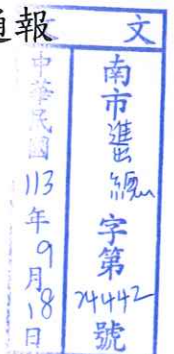 通報
文
南市
總
字第
24442
號
中華民國113年9月18日